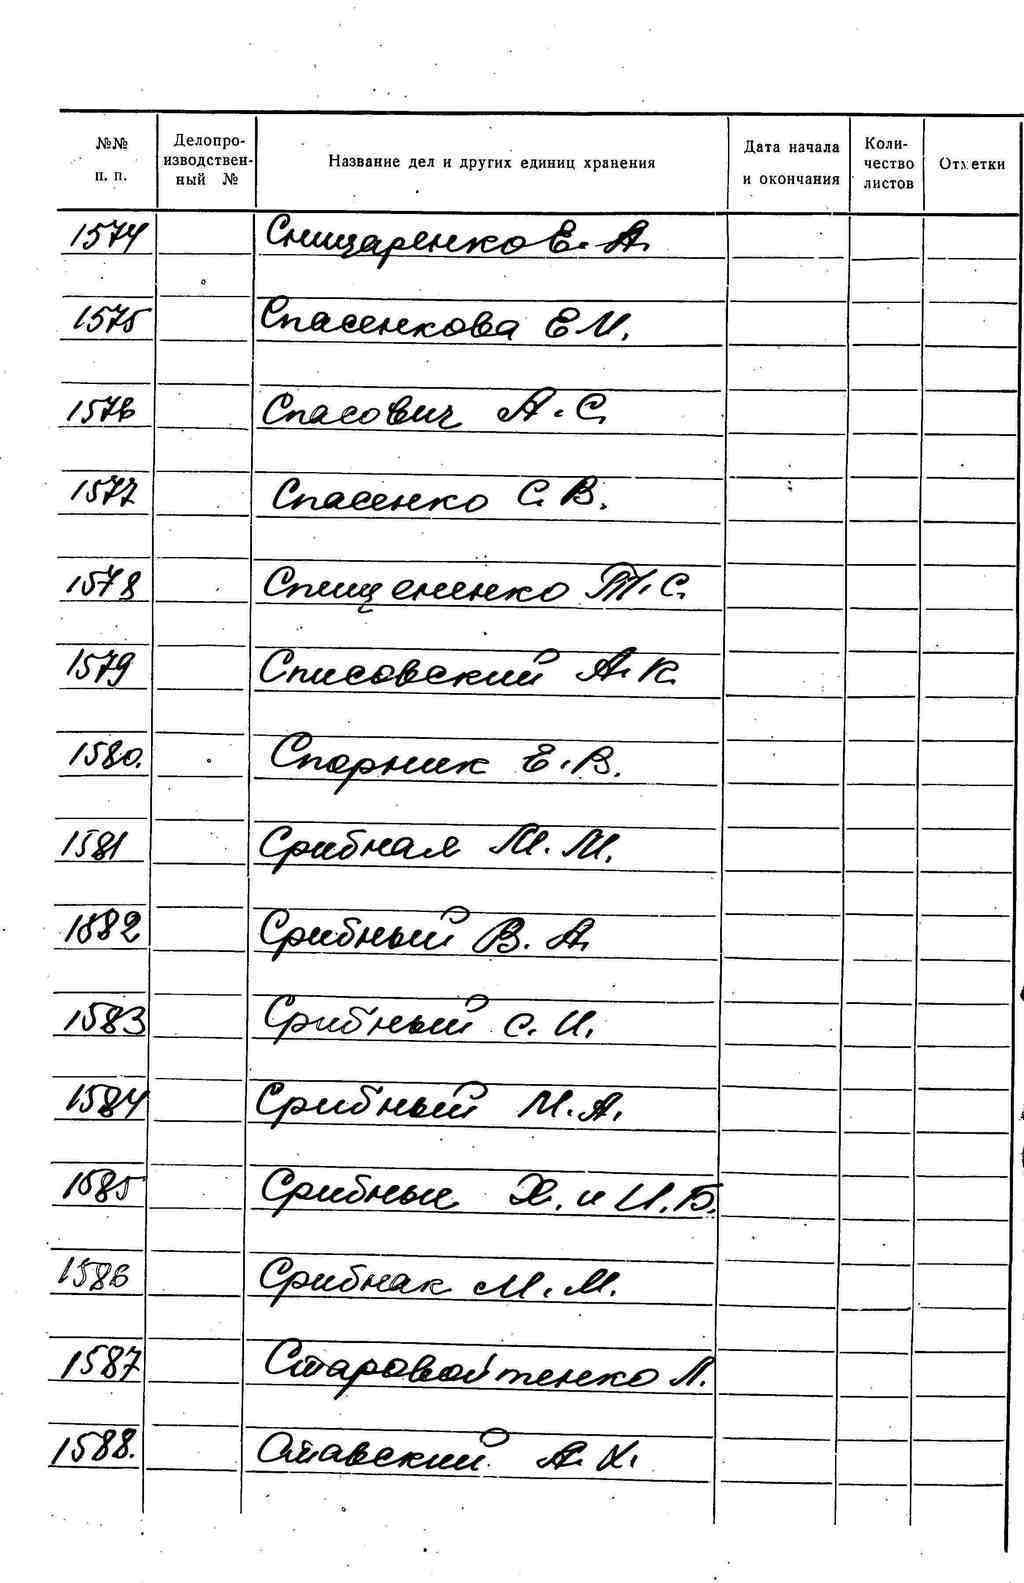 №№ п. п.
Делопро-
изводствен-
ный №
Название дел и других единиц хранения
Дата начала
и окончания
Коли-
чество
листов
Отметки
1574 Снищаренко Е. А.
1575 Спасенкова Е И.
1576 Спасович А. С.
1577 Спасенко С. В.
1578 Т. С.
1579 Списовский А. К.
1580. Спорник Е. В.
1581 Срибная М. М.
1582 Срибный В. А.
1583 Срибный С. И.
1584 Срибный М. А.
1585 Срибные Х. и И. Б.
1586 Срибнак М. М.
1587 Старовойтенко Л.
1588. Ставский А. Х.